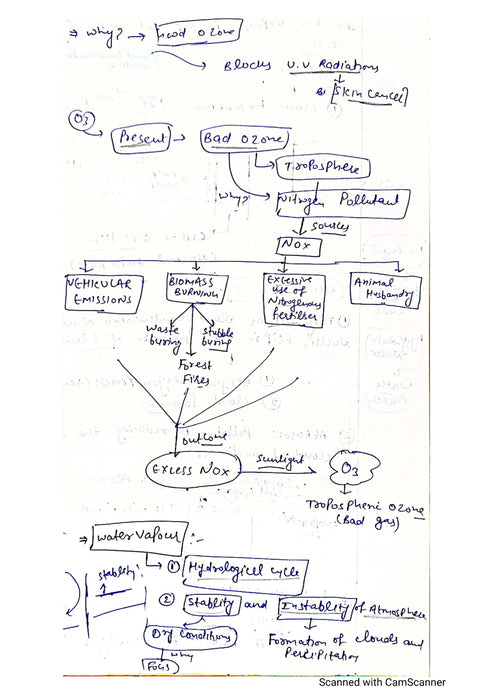 ⇒ Why? → Good Ozone
→ Blocks U.V Radiations
[Skin Cancer]
O3
Present → Bad Ozone
→ Troposphere
Why? → Nitrogen Pollutant
↓ Sources
NOx
VEHICULAR EMISSIONS
BIOMASS BURNING
EXCESSIVE use of Nitrogenous Fertiliser
Animal Husbandry
Waste buring
stubble buring
Forest Fires
outcome
EXCESS NOx sunlight → O3
Tropospheric Ozone
(Bad gas)
⇒ Water Vapour :-
→ ① Hydrological Cycle
stablity ↑
② Stablity and Instablity of Atmosphere
Dry Conditions
Formation of clouds and
Percipitation
why
FOGS
Scanned with CamScanner